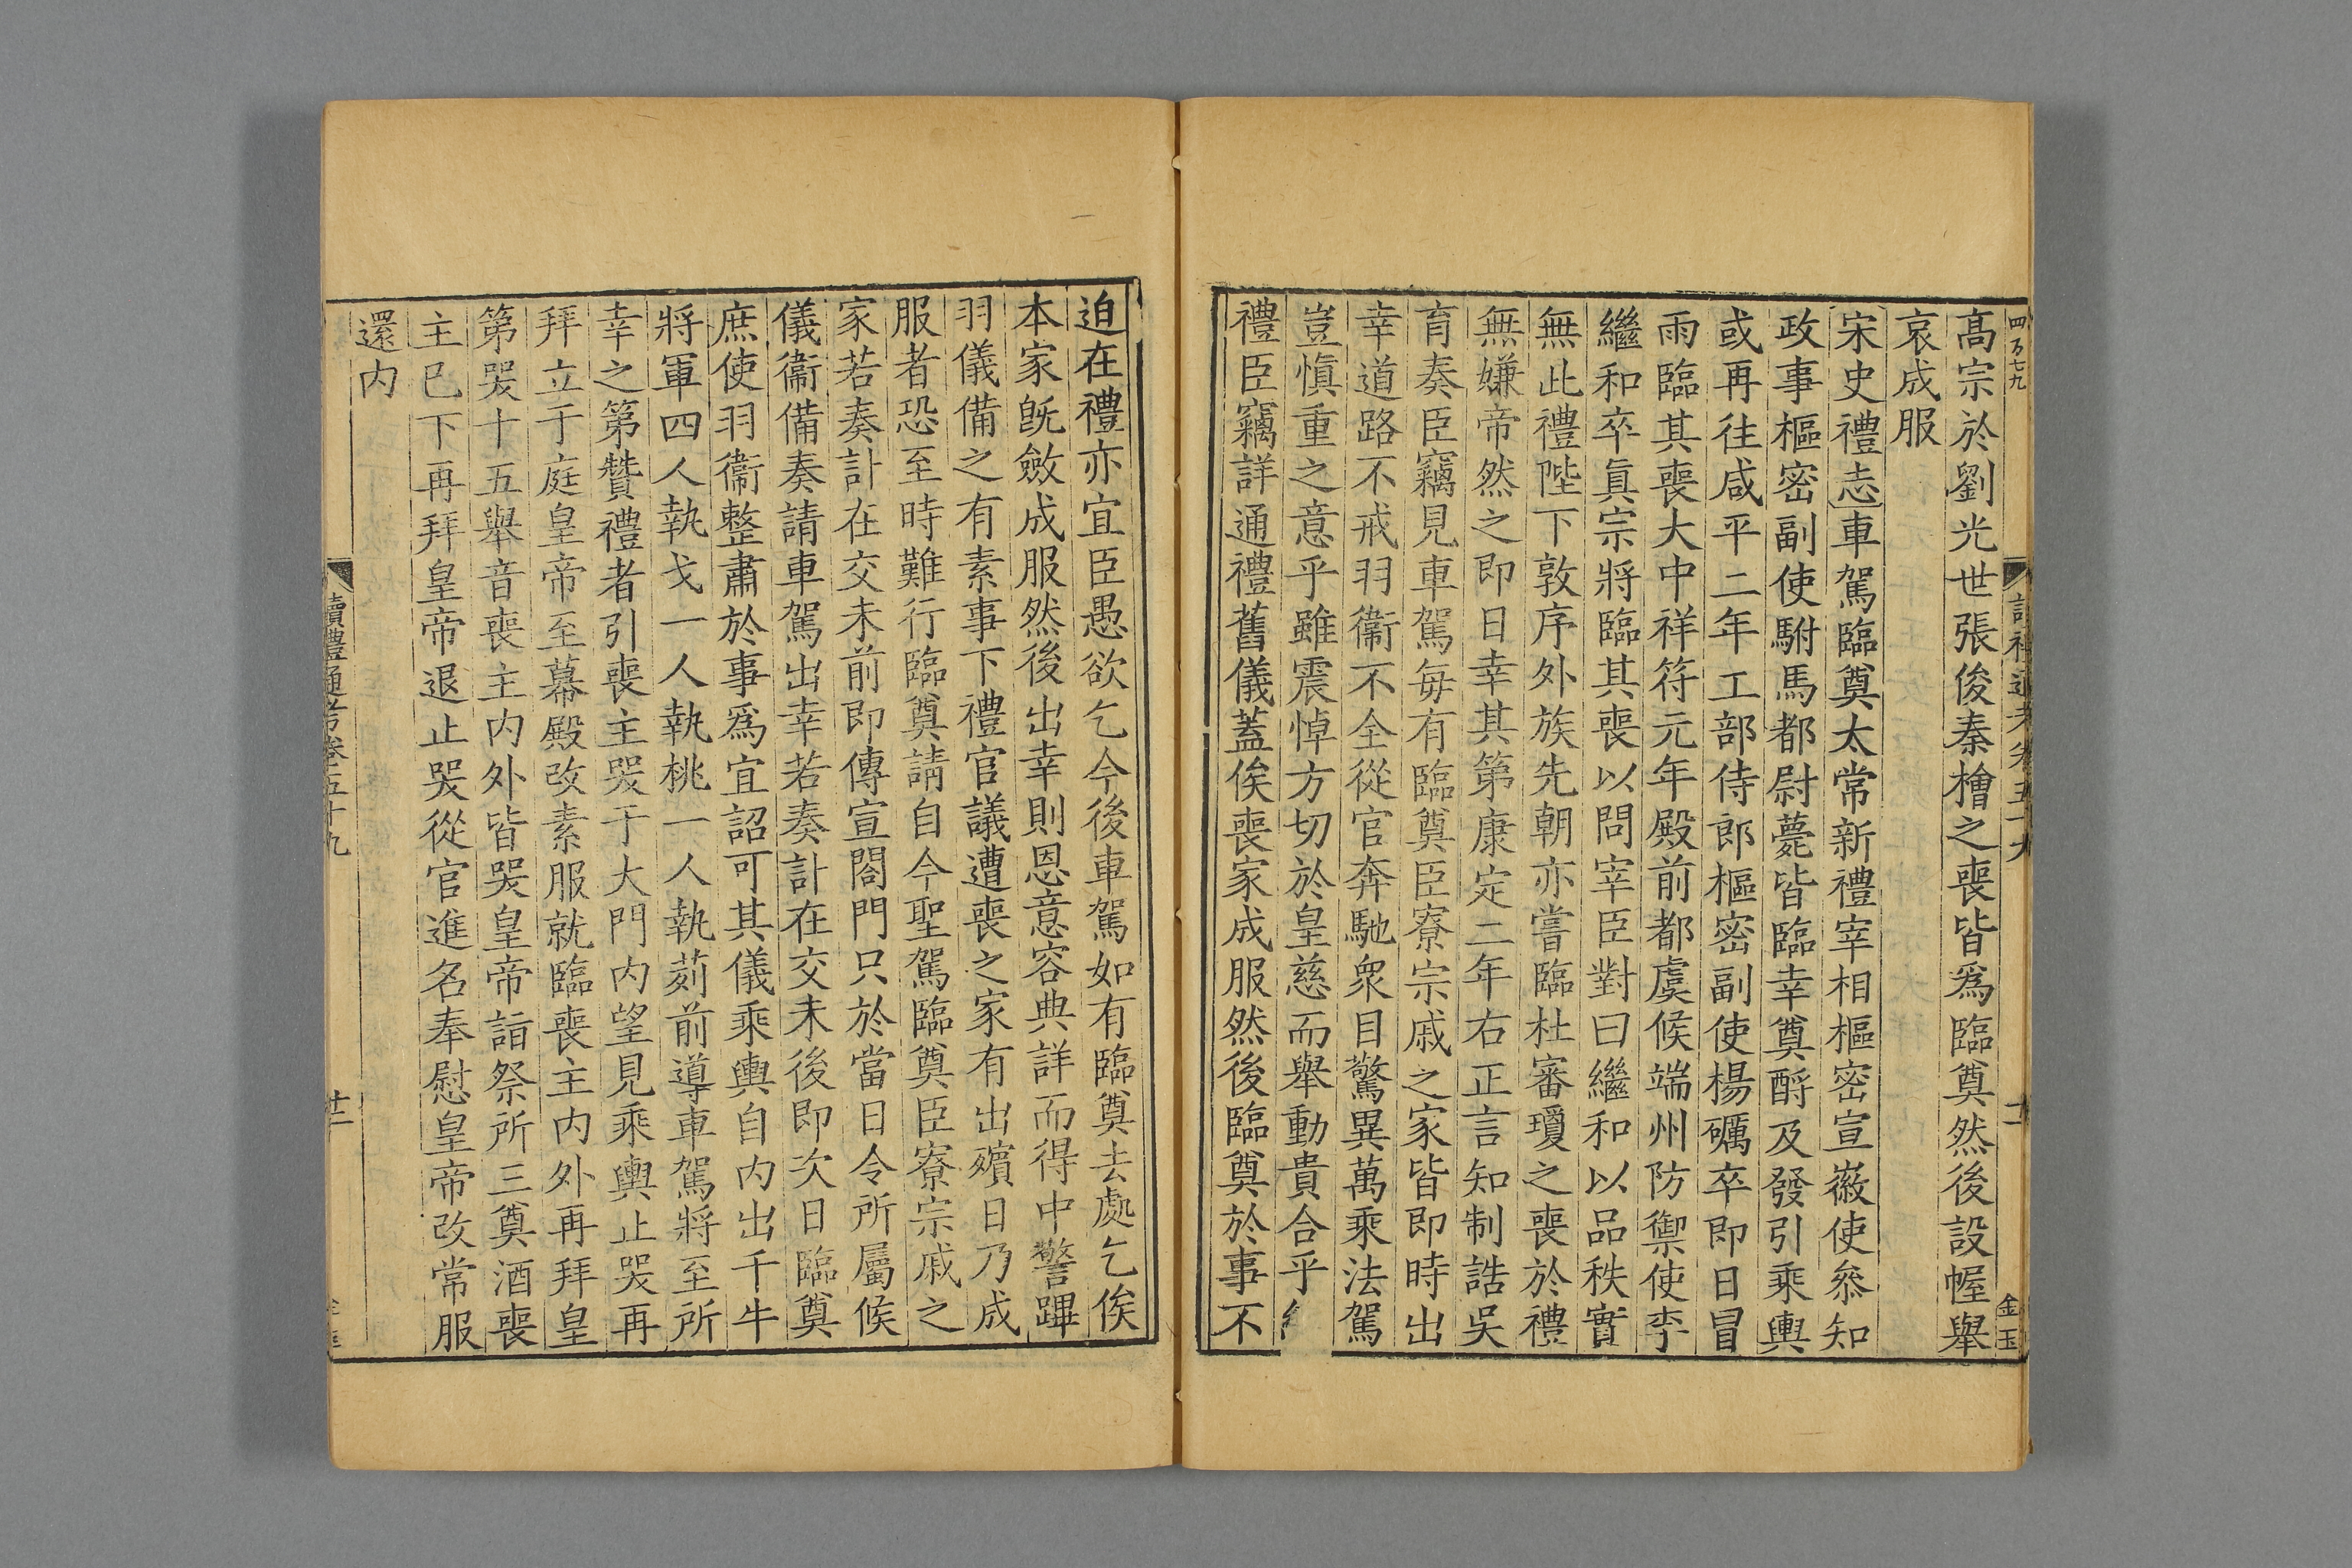 高宗於劉光世張俊秦檜之喪皆爲臨奠然後設幄舉
哀成服
宋史禮志車駕臨奠太常新禮宰相樞密宣徽使叅知
政事樞密副使駙馬都尉薨皆臨幸奠酹及發引乘輿
或再往咸平二年工部侍郎樞密副使楊礪卒即日冒
雨臨其喪大中祥符元年殿前都虞候端州防禦使李
繼和卒眞宗將臨其喪以問宰臣對曰繼和以品秩實
無此禮陛下敦序外族先朝亦嘗臨杜審瓊之喪於禮
無嫌帝然之即日幸其第康定二年右正言知制誥吳
育奏臣竊見車駕每有臨奠臣寮宗戚之家皆即時出
幸道路不戒羽衞不全從官奔馳衆目驚異萬乘法駕
豈愼重之意乎雖震悼方切於皇慈而舉動貴合乎
禮臣竊詳通禮舊儀蓋俟喪家成服然後臨奠於事不
迫在禮亦宜臣愚欲乞今後車駕如有臨奠去處乞俟
本家既斂成服然後出幸則恩意容典詳而得中警蹕
羽儀備之有素事下禮官議遭喪之家有出殯日乃成
服者恐至時難行臨奠請自今聖駕臨奠臣寮宗戚之
家若奏訃在交未前即傳宣閤門只於當日令所屬候
儀衞備奏請車駕出幸若奏訃在交未後即次日臨奠
庶使羽衞整肅於事爲宜詔可其儀乘輿自内出千牛
將軍四人執戈一人執桃一人執茢前導車駕將至所
幸之第贊禮者引喪主哭于大門内望見乘輿止哭再
拜立于庭皇帝至幕殿改素服就臨喪主内外再拜皇
第哭十五舉音喪主内外皆哭皇帝詣祭所三奠酒喪
主已下再拜皇帝退止哭從官進名奉慰皇帝改常服
還内
讀禮通考卷五十九